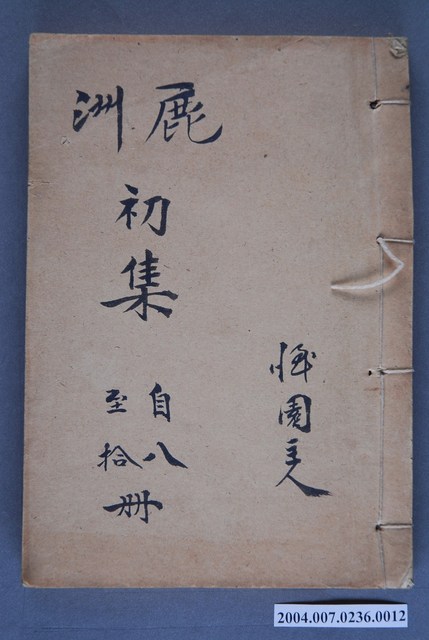 鹿洲
初集
自八
至拾
册
園主人
2004.007.0236.0012